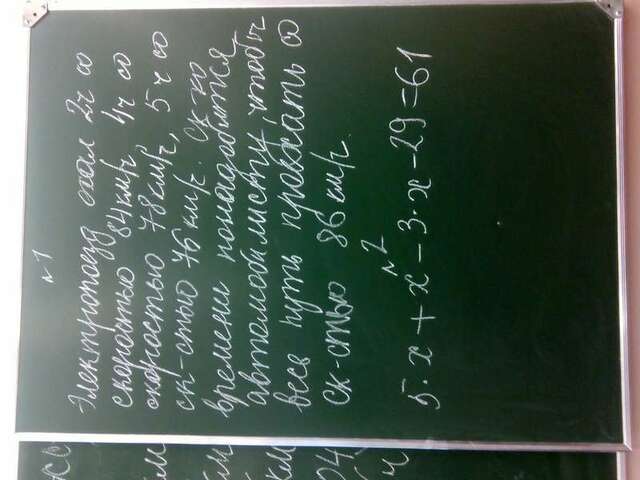 №1
Электропоезд ехал 2ч со
скоростью 84км/ч 4ч со
скоростью 78км/ч, 5ч со
ск-стью 76км/ч. Ск-ко
времени понадобится
автомобилисту, чтобы
весь путь проехать со
ск-стью 86км/ч.
№2
5·x+x-3·x-29=61